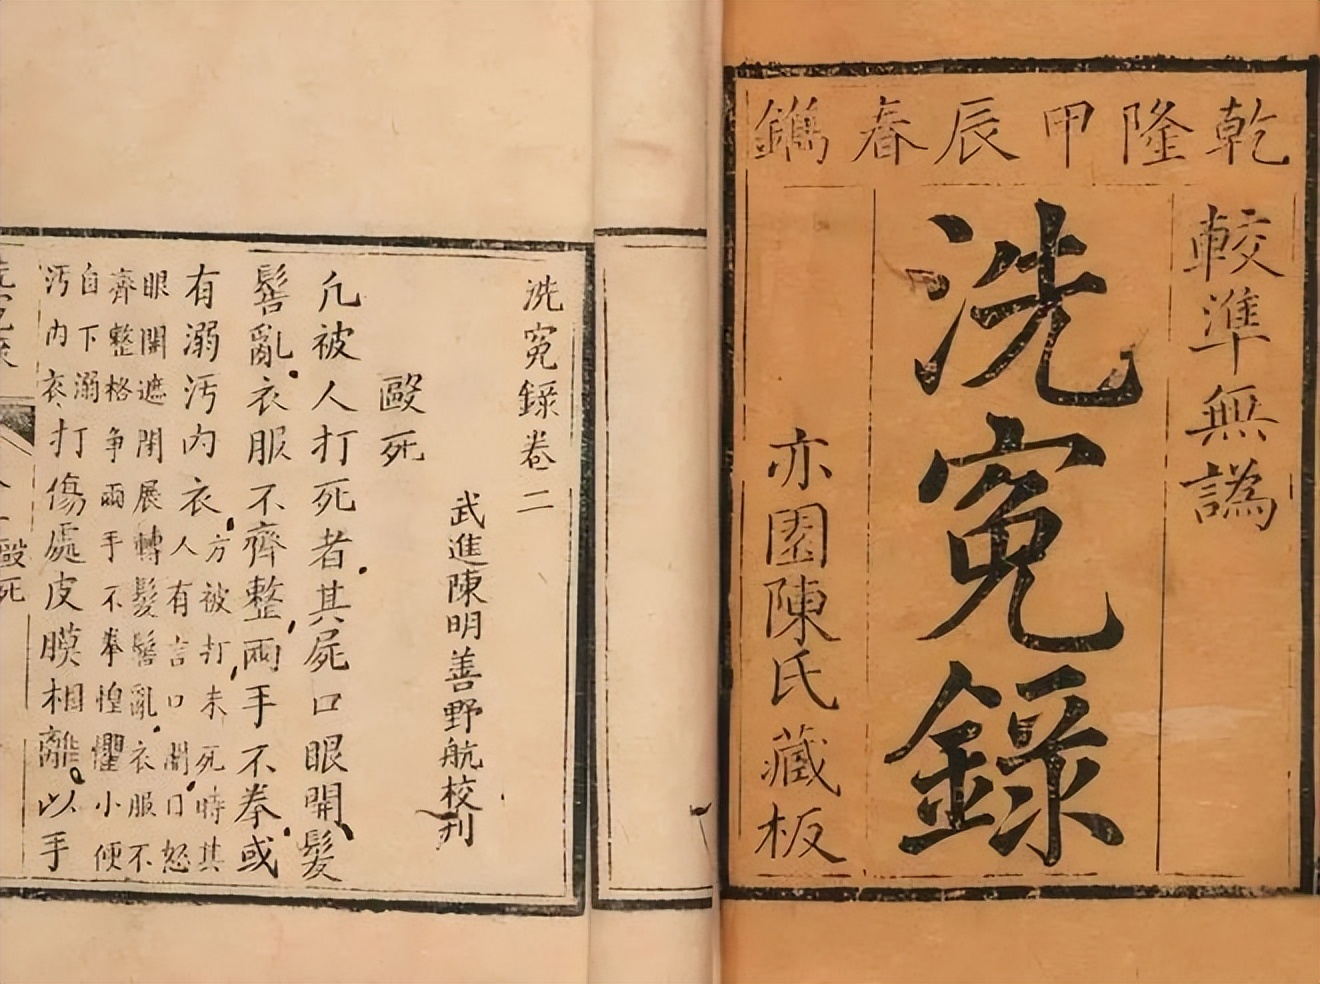 乾隆甲辰春鐫
較準無譌
洗寃錄
亦園陳氏藏板
洗寃錄卷二
武進陳明善野航校刊
毆死
凢被人打死者其屍口眼開髮
髻亂衣服不齊整兩手不拳或
有溺汚內衣方被打未死時其
人有言口開口怒
眼開遮閉展轉髮髻亂衣服不
齊整格争兩手不拳惶懼小便
自下溺
汚內衣打傷處皮膜相離以手
毆死